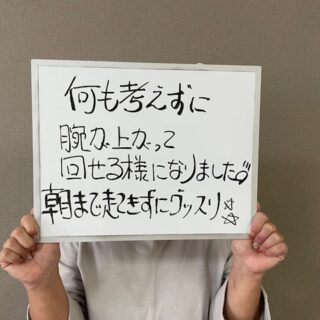 何も考えずに
腕が上がって
回せる様になりました♫
朝まで起きずにグッスリ☆☆